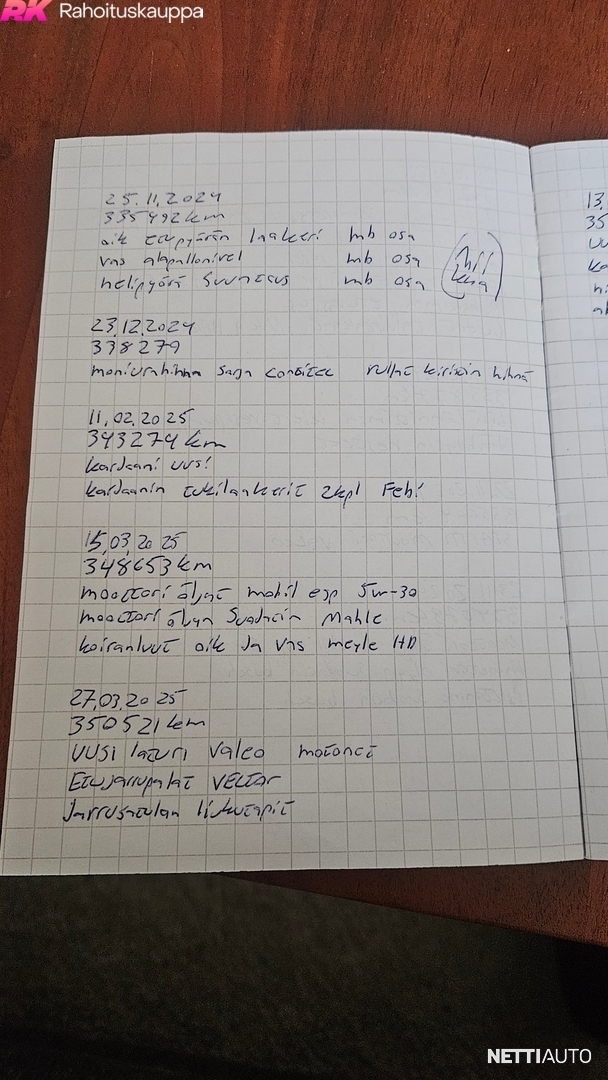 RK Rahoituskauppa
25.11.2024
335492 km
oik etupyörän laakeri mb osa
vas alapallonivel mb osa
nelipyörä suuntaus mb osa
23.12.2024
338279
moniurahihna sarja contitec rullat kiristin hihna
11.02.2025
343274 km
kardaani uusi
kardaanin tukilaakerit 2kpl Febi
15.03.2025
348653 km
moottori öljyt mobil esp 5w-30
moottori öljyn suodatin Mahle
koiranluut oik ja vas meyle HD
27.03.2025
350521 km
uusi laturi valeo motonet
Etujarrupalat vector
Jarrusatulan liukutapit
13.
35
NETTIAUTO